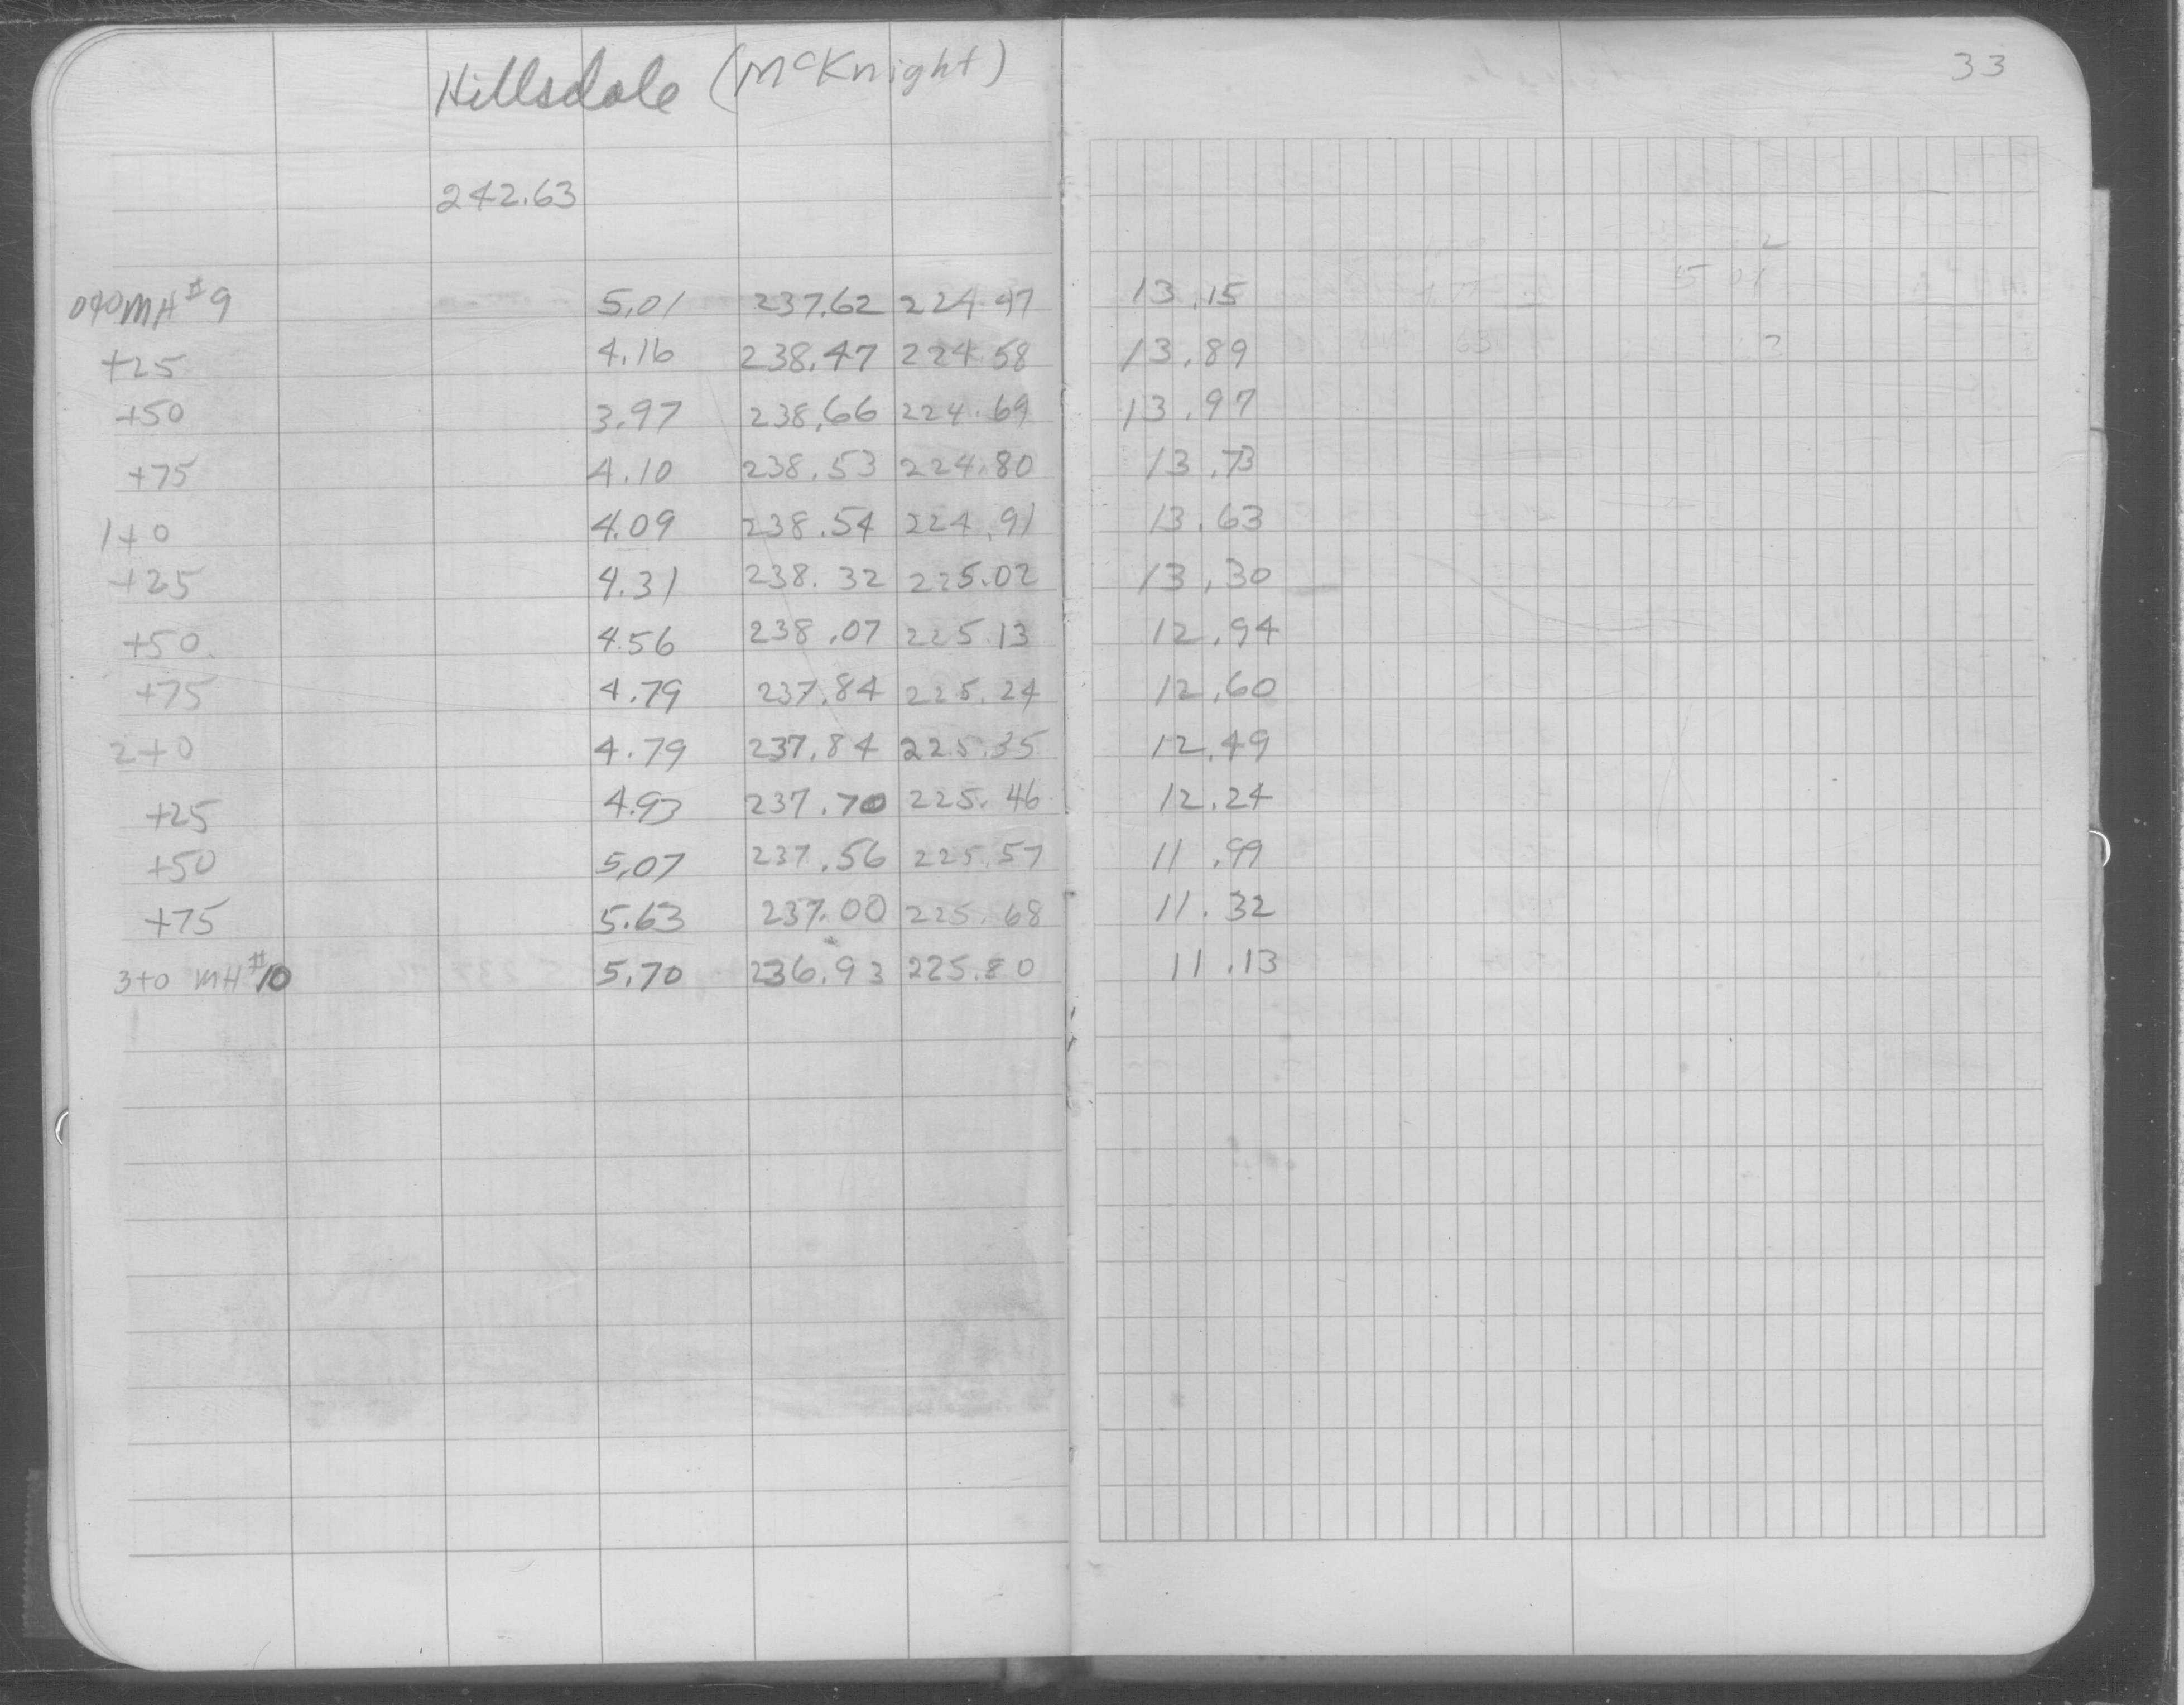 Hillsdale (McKnight)
33
242.63
0+0 MH #9 5.01 237.62 224.47 13.15
+25 4.16 238.47 224.58 13.89
+50 3.97 238.66 224.69 13.97
+75 4.10 238.53 224.80 13.73
1+0 4.09 238.54 224.91 13.63
+25 4.31 238.32 225.02 13.30
+50 4.56 238.07 225.13 12.94
+75 4.79 237.84 225.24 12.60
2+0 4.79 237.84 225.35 12.49
+25 4.93 237.70 225.46 12.24
+50 5.07 237.56 225.57 11.99
+75 5.63 237.00 225.68 11.32
3+0 MH #10 5.70 236.93 225.80 11.13